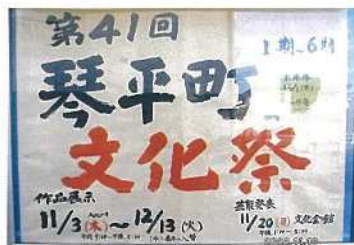 第41回
1期~6期
琴平町
文化祭
作品展示
11/3(木)~12/13(火)
芸能発表
11/20(日)文化会館